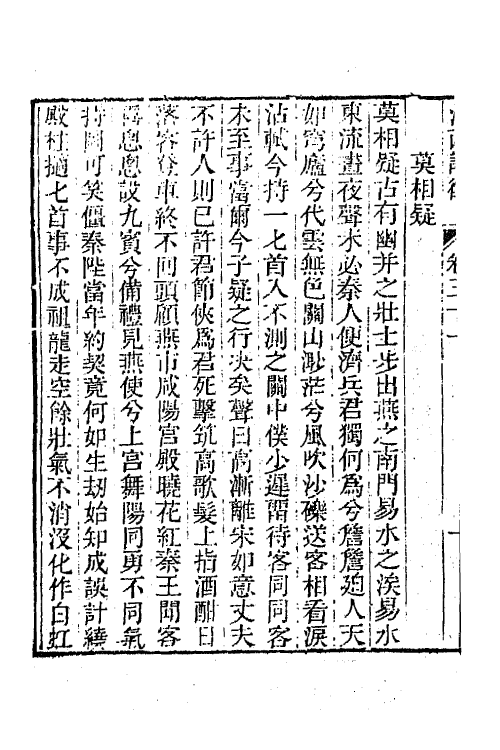 卷三十一
莫相疑
莫相疑古有幽并之壯士步出燕之南門易水之涘易水
東流晝夜聲未必秦人便濟兵君獨何爲兮詹詹廹人天
如穹廬兮代雲無色關山渺茫兮風吹沙礫送客相看淚
沾軾今持一七首入不測之關中僕少遲畱待客同同客
未至事當爾今子疑之行决矣聲曰高漸離宋如意丈夫
不許人則已許君節俠爲君死擊筑高歌髮上指酒酣日
落客登車終不回頭顧燕市咸陽宮殿曉花紅秦王聞客
喜恩恩設九賓兮備禮見燕使兮上宮舞陽同勇不同氣
持圖可笑僵秦陛當年約契竟何如生刼始知成誤計繞
殿柱擿七首事不成祖龍走空餘壯氣不消沒化作白虹